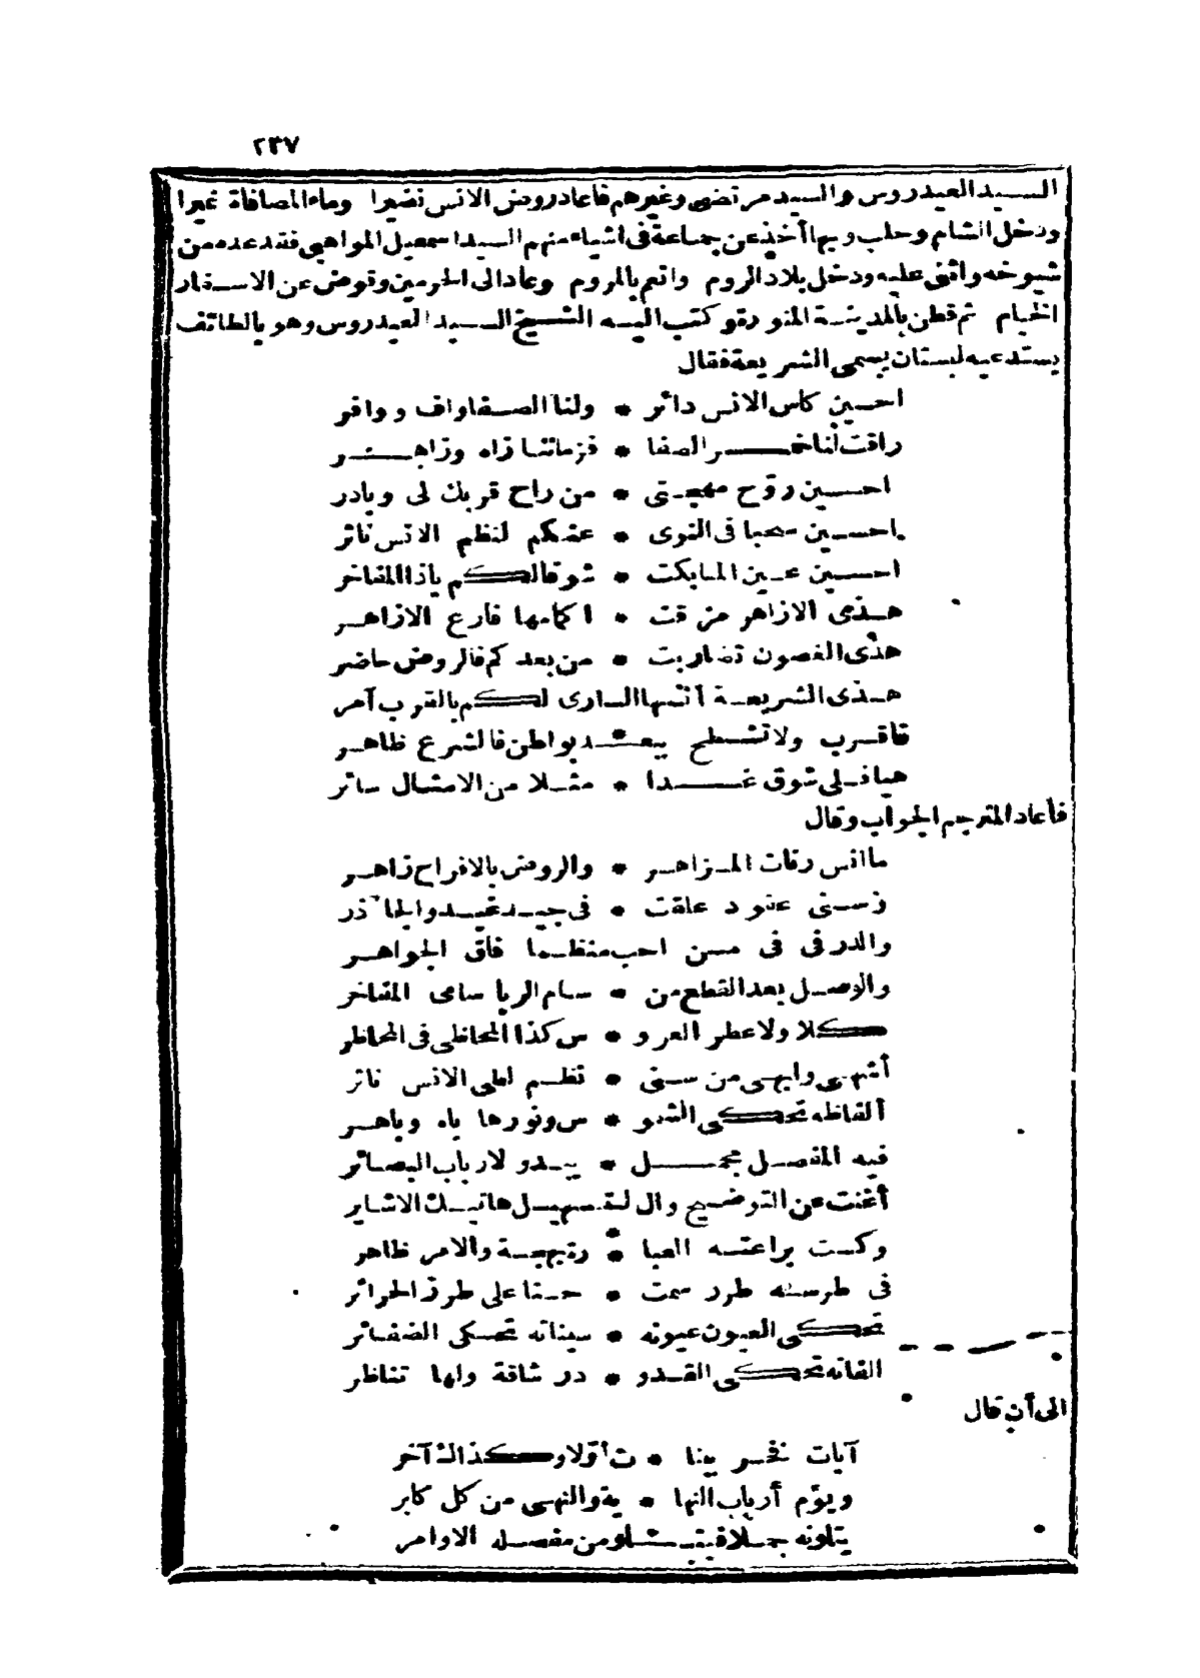 ٢٣٧
السيد العيدروس والسيد مرتضى وغيرهم فأعاد روض الانس نضيرا وماء المصافاة نميرا
ودخل الشام وحلب وبها أخذ عن جماعة فى اشياء منهم السيد اسمعيل المواهبى فقد عده من
شيوخه واثنى عليه ودخل بلاد الروم وانعم بالمروم وعاد الى الحرمين وقوض عن الاسفار
الخيام ثم قطن بالمدينة المنورة وكتب اليه الشيخ السيد العيدروس وهو بالطائف
يستدعيه لبستان يسمى الشريعة فقال
احسين كاس الانس دائر * ولنا الصفا واف ووافر
راقت لنا خمر الصفا * فزماننا زاه وزاهر
احسين روّح مهجتى * من راح قربك لى وبادر
احسين صحبا فى النوى * عقدكم لنظم الانس ناثر
احسين عين المابكت * شوقا لكم ياذا المفاخر
هذى الازاهر مزقت * اكمامها فارع الازاهر
هذى الغصون تضاربت * من بعدكم فالروض حاضر
هذى الشريعة أنتمها البارى لكم بالقرب آمر
فاقرب ولا تشطح ببعد بواطن فالشرع ظاهر
هيا فلى شوق غدا * مثلا من الامثال سائر
فأعاد المترجم الجواب وقال
ما انس رنات المزاهر * والروض بالافراح زاهر
وسنى عقود علقت * فى جيد غيد والجاذر
والدر فى فى مسن احب منظما فاق الجواهر
والوصل بعد القطع من * سام الربا سامى المفاخر
كلا ولا عطر العرو * س كذا المحاظى فى المحاظر
أشهى وابهى من سنى * نظم لملى الانس ناثر
ألفاظه تحكى الشمو * س ونورها باه وباهر
فيه المفصل مجمل * يبدو لارباب البصائر
أغنت عن التوضيح وال تسهيل هاتيك الاشاير
وكست براعته العبا * رة بهجة والامر ظاهر
فى طرسه طرر سمت * حسنا على طرز الحرائر
تحكى العيون عيونه * سيناته تحكى الضفائر
الفاته تحكى القدو * در شاقة ولها تناظر
الى أن قال
آيات نخسر بينا * ت أوّلا وكذالك آخر
ويؤم أرباب النها * ية والنهى من كل كابر
يتلونه جملا من مفصله الاوامر